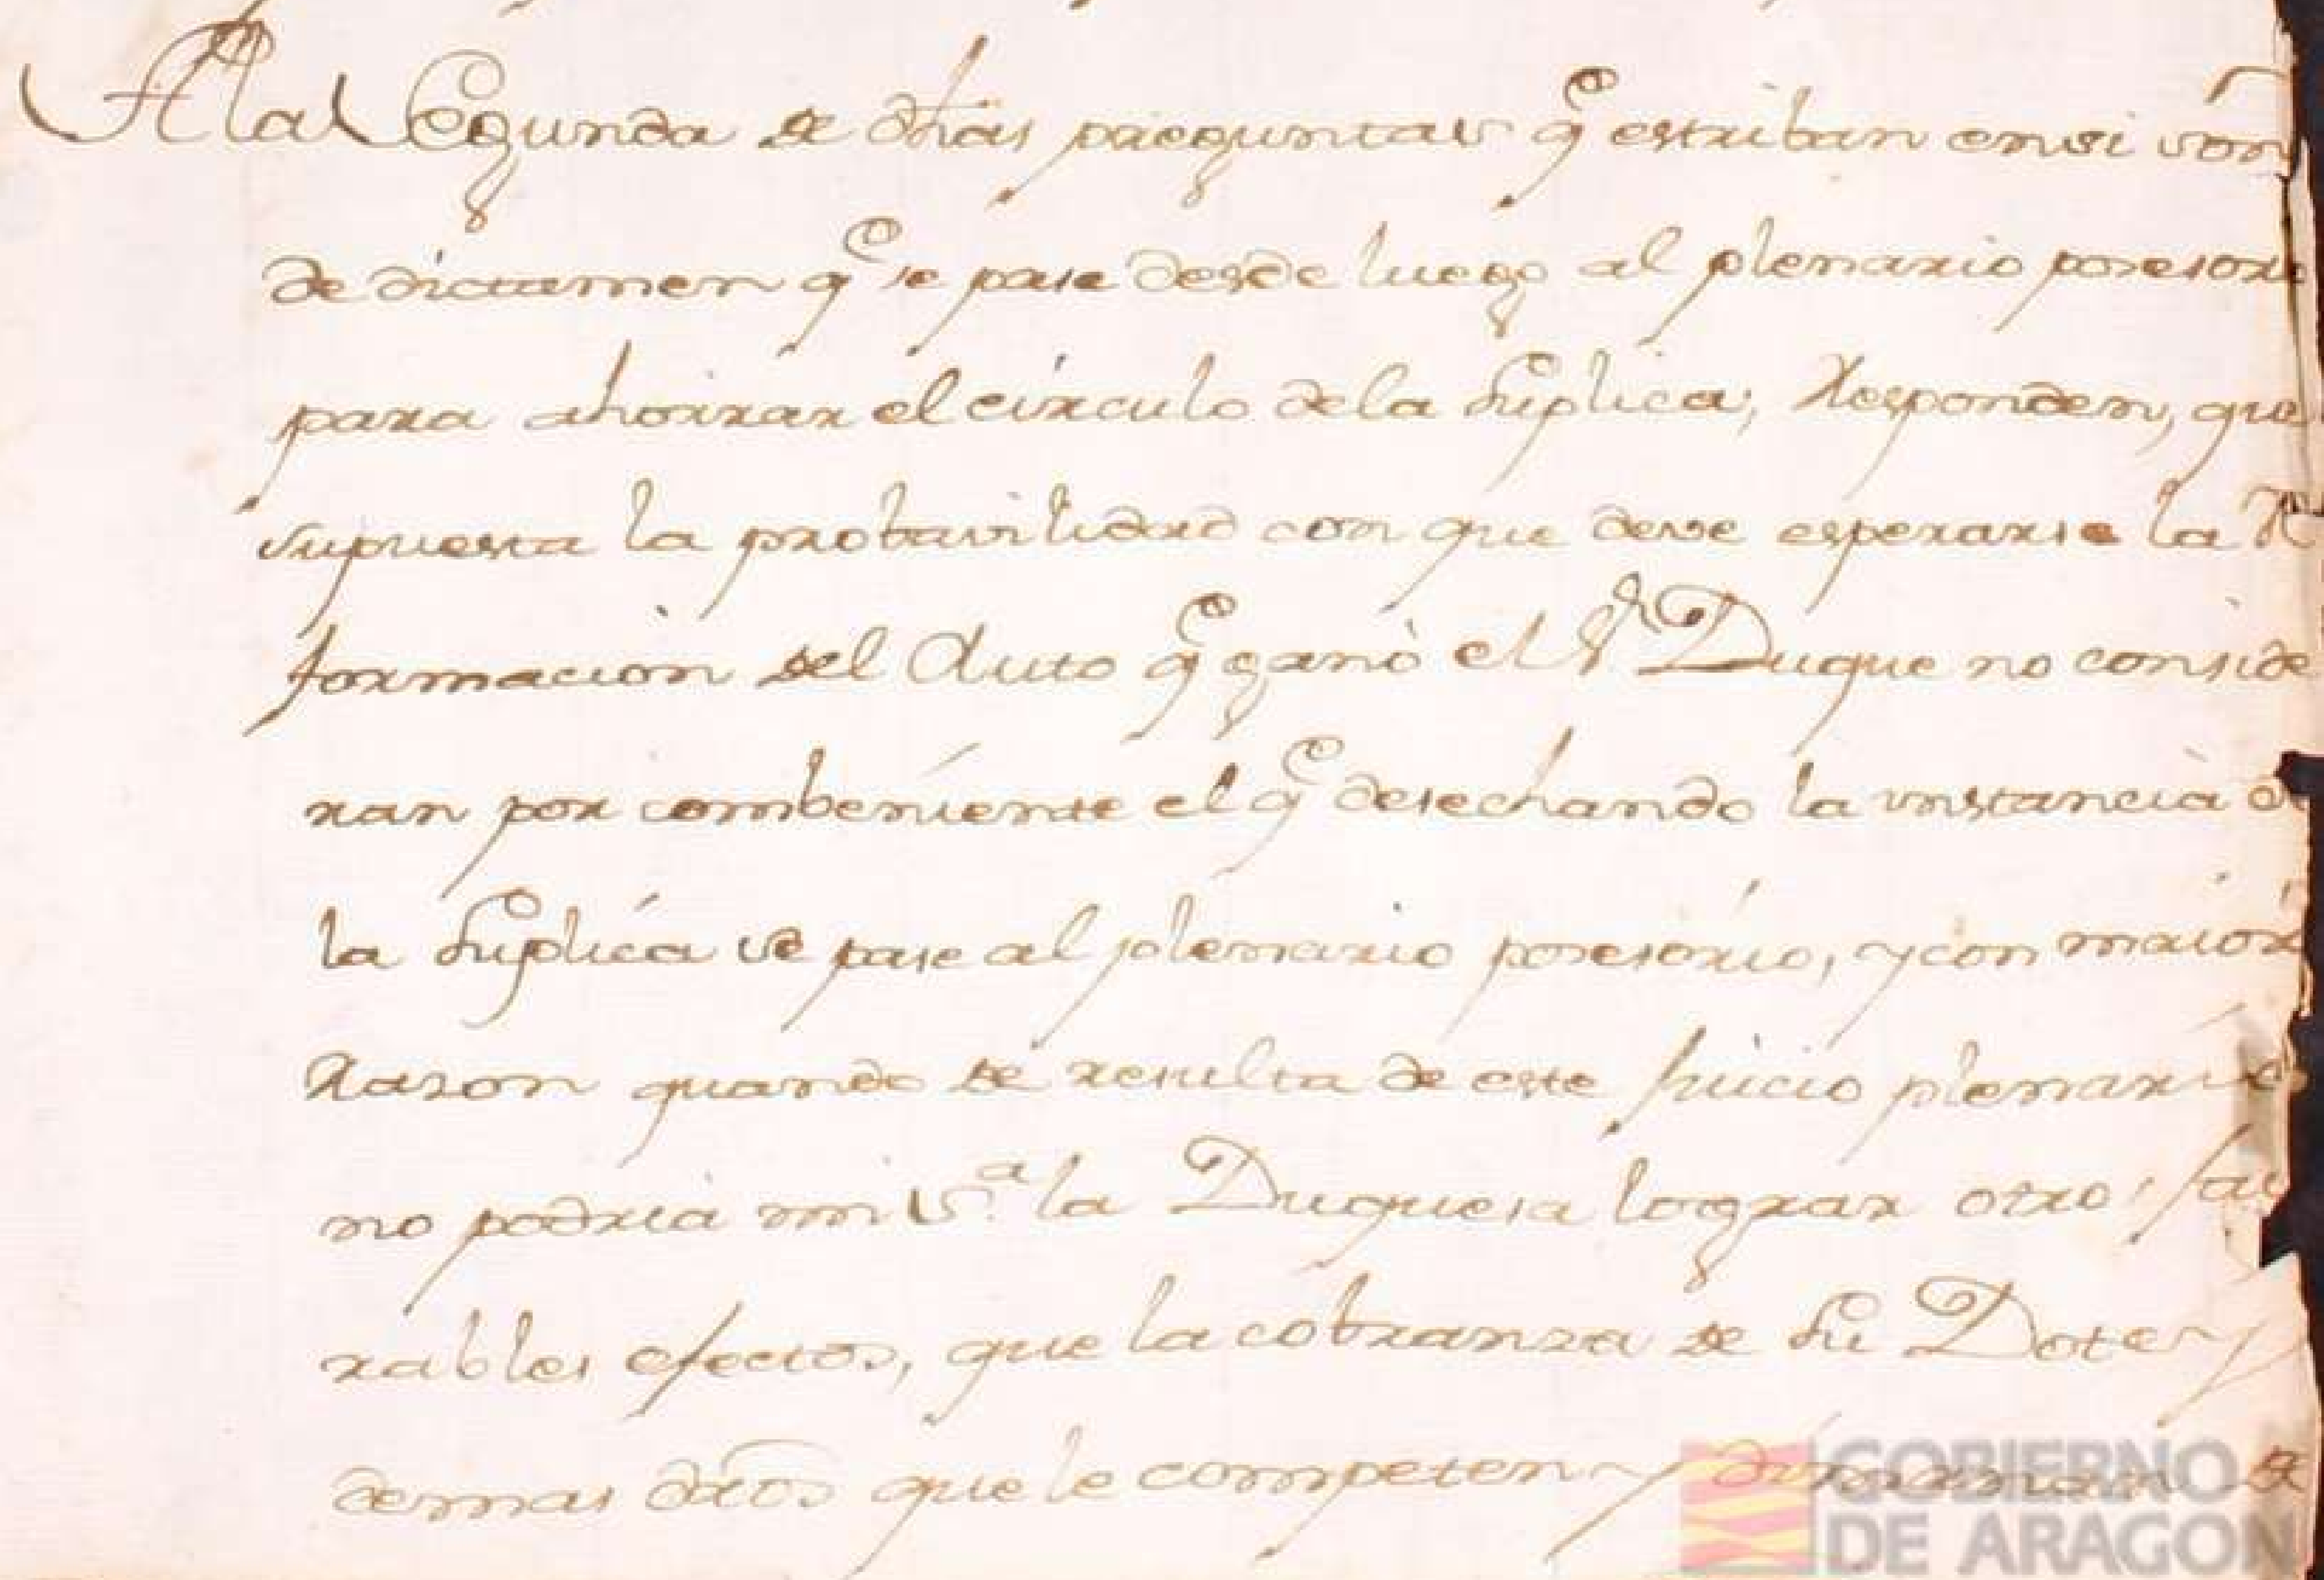 A la Segunda de dhas preguntas q.e estriban en si son
de dictamen q.e se pase desde luego al plenario posesorio
para ahorrar el circulo de la Suplica; Responden, que
supuesta la probavilidad con que deve esperarse la Re
formacion del Auto q.e ganò el S.r Duque no conside
ran por combeniente el q.e desechando la instancia de
la Suplica se pase al plenario posesorio, y con maior
Razon quando de resulta de este juicio plenario
no podria mi S.a la Duquesa lograr otros favo
rables efectos, que la cobranza de su Dote y
demas dr̃os que le competen y de
GOBIERNO
DE ARAGON